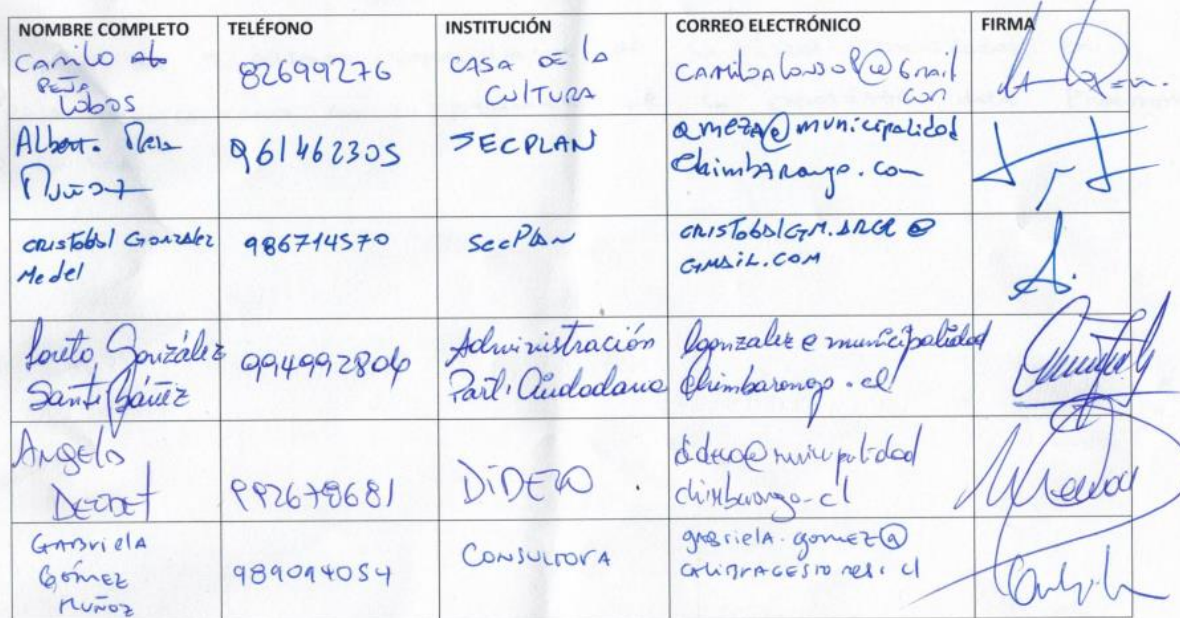 NOMBRE COMPLETO TELÉFONO INSTITUCIÓN CORREO ELECTRÓNICO FIRMA
Camilo
PEÑA
Lobos
82699276
CASA DE la
CULTURA
CAMiloAlonsoP@Gmail
com
Alberto
Muñoz
961462305
SECPLAN
ameza@municipalidad
chimbarongo.com
CRISTObal González
Medel
986714570
SecPlan
CRISTObalGM.ARQR@
GMAIL.COM
Loreto González
Santibáñez
994992806
Administración
Parti. Ciudadana
lgonzalez@municipalidad
chimbarongo.cl
Angelo
992678681
DIDECO
dideco@municipalidad
chimbarongo.cl
GABriela
Gómez
MUÑOZ
989014054
CONSULTORA
gabriela.gomez@